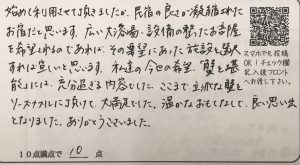 始めて利用させて頂きましたが、民宿の良さが凝縮された
お宿だと思います。広い大浴場・設備の整ったお部屋
を希望されるのであれば、その希望にあった施設を選択
すれば宜しいと思います。私達の今回の希望、「蟹を堪
能」には、充分過ぎる内容でした。ここまで立派な蟹を
リーズナブルに頂けて、大満足でした。温かなおもてなしで、良い思い出
となりました。ありがとうございました。
10点満点で 10 点
スマホでも投稿
OK！チェック欄
記入後フロント
へお渡し下さい。